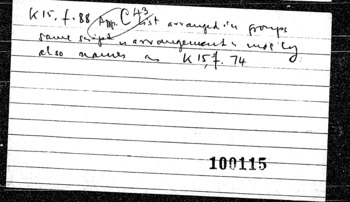 K 15, f. 88 App. C 43 list arranged in groups
same script & arrangement & mostly
also names as K 15, f. 74
100115